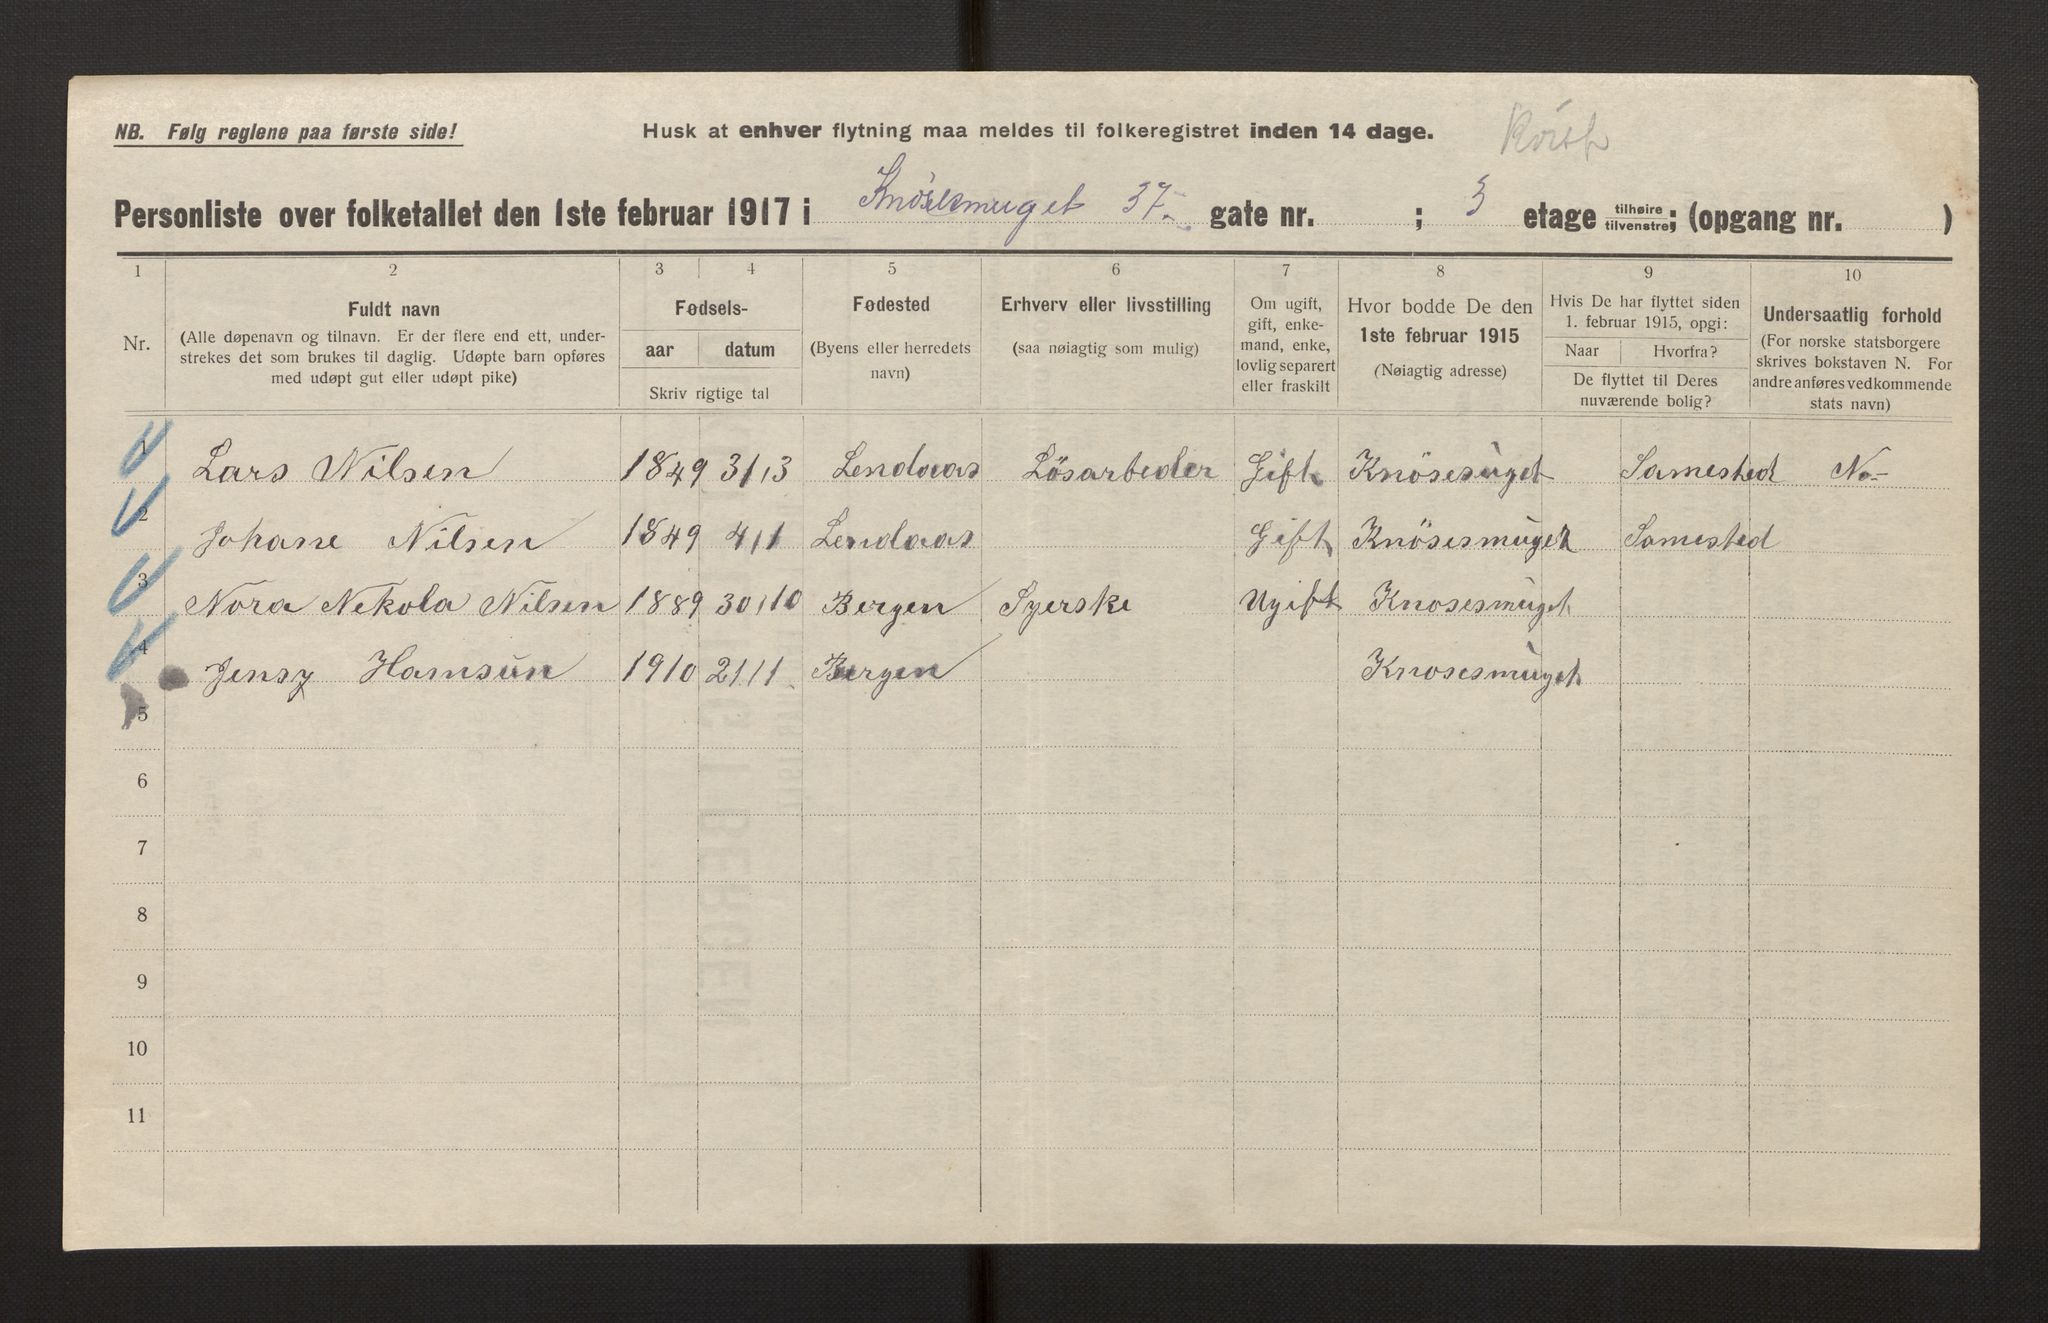 NB. Følg reglene paa første side!
Husk at enhver flytning maa meldes til folkeregistret inden 14 dage.
Personliste over folketallet den 1ste februar 1917 i Knösesmuget 37. gate nr. ; 3 etage tilhøire/tilvenstre; (opgang nr. )
1 2 3 4 5 6 7 8 9 10
Nr.
Fuldt navn
(Alle døpenavn og tilnavn. Er der flere end ett, under-
strekes det som brukes til daglig. Udøpte barn opføres
med udøpt gut eller udøpt pike)
Fødsels-
aar datum
Skriv rigtige tal
Fødested
(Byens eller herredets
navn)
Erhverv eller livsstilling
(saa nøiagtig som mulig)
Om ugift,
gift, enke-
mand, enke,
lovlig separert
eller fraskilt
Hvor bodde De den
1ste februar 1915
(Nøiagtig adresse)
Hvis De har flyttet siden
1. februar 1915, opgi:
Naar Hvorfra?
De flyttet til Deres
nuværende bolig?
Undersaatlig forhold
(For norske statsborgere
skrives bokstaven N. For
andre anføres vedkommende
stats navn)
1 Lars Nilsen 1849 31/3 Lendaas Lösarbeder Gift Knösesuget Samested No-
2 Johane Nilsen 1849 4/1 Lendaas Gift Knösesmuget Samested
3 Nora Nekola Nilsen 1889 30/10 Bergen Syerske Ugift Knosesmuget
4 Jensy Hamsun 1910 21/1 Bergen Knosesmuget
5
6
7
8
9
10
11